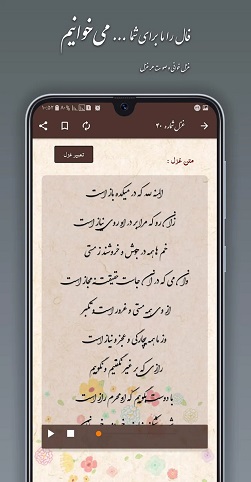 فال را ما برای شما ... می‌خوانیم
غزل خوانی و صوت هر غزل
غزل شماره ۴۰
تعبیر غزل
متن غزل :
المنة لله که در میکده باز است
زان رو که مرا بر در او روی نیاز است
خم‌ها همه در جوش و خروشند ز مستی
وان می که در آن جاست حقیقت نه مجاز است
از وی همه مستی و غرور است و تکبر
وز ما همه بیچارگی و عجز و نیاز است
رازی که بر غیر نگفتیم و نگوییم
با دوست بگوییم که او محرم راز است